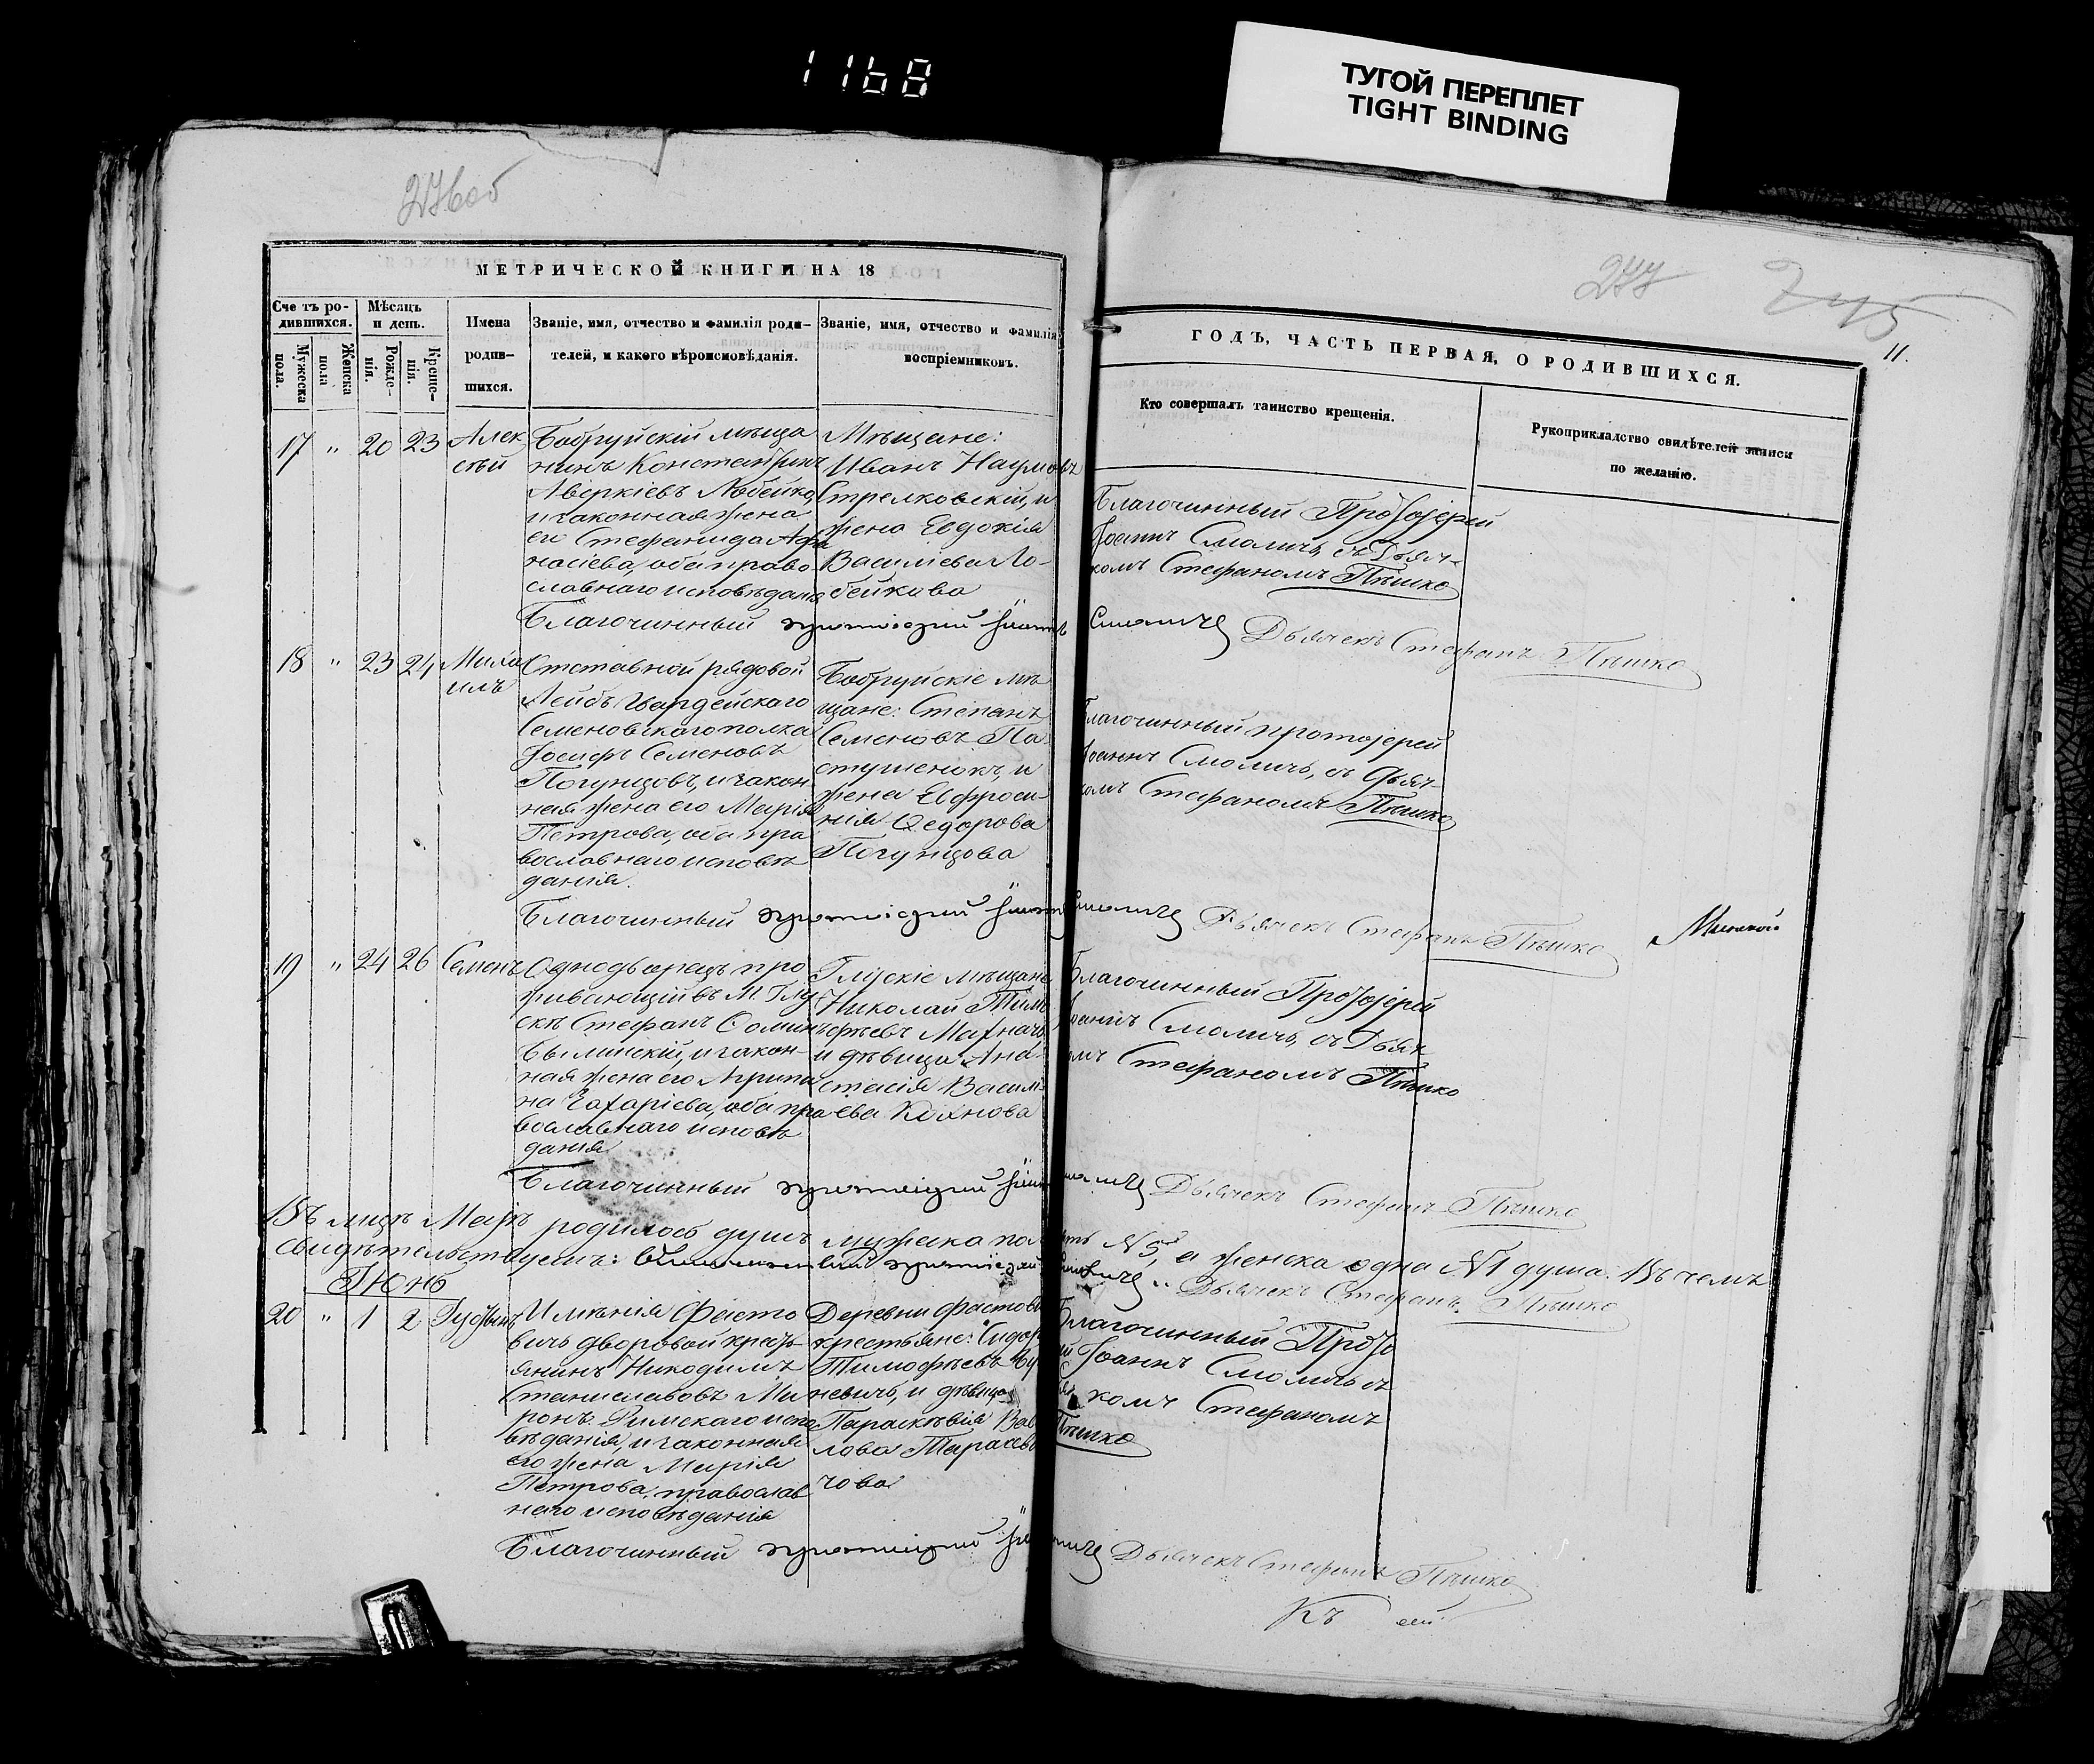 1168
ТУГОЙ ПЕРЕПЛЕТ
TIGHT BINDING
276об
277
245
11.
МЕТРИЧЕСКОЙ КНИГИ НА 18
ГОДЪ, ЧАСТЬ ПЕРВАЯ, О РОДИВШИХСЯ.
Счетъ ро-
дившихся.
Мужеска
пола.
Женска
пола
Мѣсяцъ
и день.
Рожде-
нія.
Креще-
нія.
Имена
родив-
шихся.
Званіе, имя, отчество и фамилія роди-
телей, и какого вѣроисповѣданія.
Званіе, имя, отчество и фамилія
воспріемниковъ.
Кто совершалъ таинство крещенія.
Рукоприкладство свидѣтелей записи
по желанію.
17 " 20 23
Алек
сѣй
Бобруйскій мѣща
нинъ Константинъ
Аверкіевъ Лобейко,
и законная жена
его Стефанида Афа
насіева, оба право
славнаго исповѣданія
Мѣщане:
Иванъ Наумовъ
Стрелковскій, и
жена Евдокія
Василіева Ло-
бейкова
Благочинный Протоіерей
Іоаннъ Смоличъ, съ Дьяч-
комъ Стефаномъ Пѣшко
Благочинный протоіерей Іоаннъ Смоличъ Дьячекъ Стефанъ Пѣшко
18 " 23 24
Миха
илъ
Отставной рядовой
Лейбъ Гвардейскаго
Семеновскаго полка
Іосифъ Семеновъ
Погунцовъ, и закон
ная жена его Марія
Петрова, оба пра
вославнаго исповѣ
данія.
Бобруйскіе мѣ
щане: Степанъ
Семеновъ Па
стушенокъ, и
жена Евфроси-
нія Федорова
Погунцова
Благочинный протоіерей
Іоаннъ Смоличъ, съ Дьяч-
комъ Стефаномъ Пѣшко
Благочинный протоіерей Іоаннъ Смоличъ Дьячекъ Стефанъ Пѣшко
Минской
19 " 24 26
Семенъ
Однодворецъ про
живающій въ М. Глу
скѣ Стефанъ Фоминъ
Былинскій, и закон-
ная жена его Агрипи
на Захаріева, оба пра
вославнаго исповѣ
данія
Глускіе мѣщане
Николай Тимо
фѣевъ Махначъ
и дѣвица Ана-
стасія Василі-
ева Кохнова
Благочинный Протоіерей
Іоаннъ Смоличъ, съ Дьяч
комъ Стефаномъ Пѣшко
Благочинный протоіерей Іоаннъ Смоличъ Дьячекъ Стефанъ Пѣшко
Въ мцѣ Маѣ родилось душъ мужеска пола пять №5, а женска одна №1 душа. Въ чемъ
свидѣтельствуемъ: Благочинный протоіерей Іоаннъ Смоличъ Дьячекъ Стефанъ Пѣшко
Іюнь
20 " 1 2
Имѣнія Фасто
вичъ дворовой кресть
янинъ Никодимъ
Станиславовъ Ми
ронъ Римскаго испо
вѣданія, и законная
его жена Марія
Петрова, православ
наго исповѣданія
Деревни Фастови
крестьяне: Сидоръ
Тимофѣевъ
невичъ, и дѣвица
Параскѣвія Вав
лова Тарасеви
чова
Благочинный Прото
й Іоаннъ Смоличъ съ
комъ Стефаномъ
Пѣшко
Благочинный протоіерей Дьячекъ Стефанъ Пѣшко
Къ сей